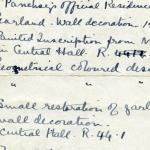 Panehsy's Official Residence
Garland. Wall decoration
Painted Inscription from N
in Central Hall. R. 44.1
Geometrical coloured des
" "
Small restoration of garl
wall decoration.
Central Hall. R. 44.1